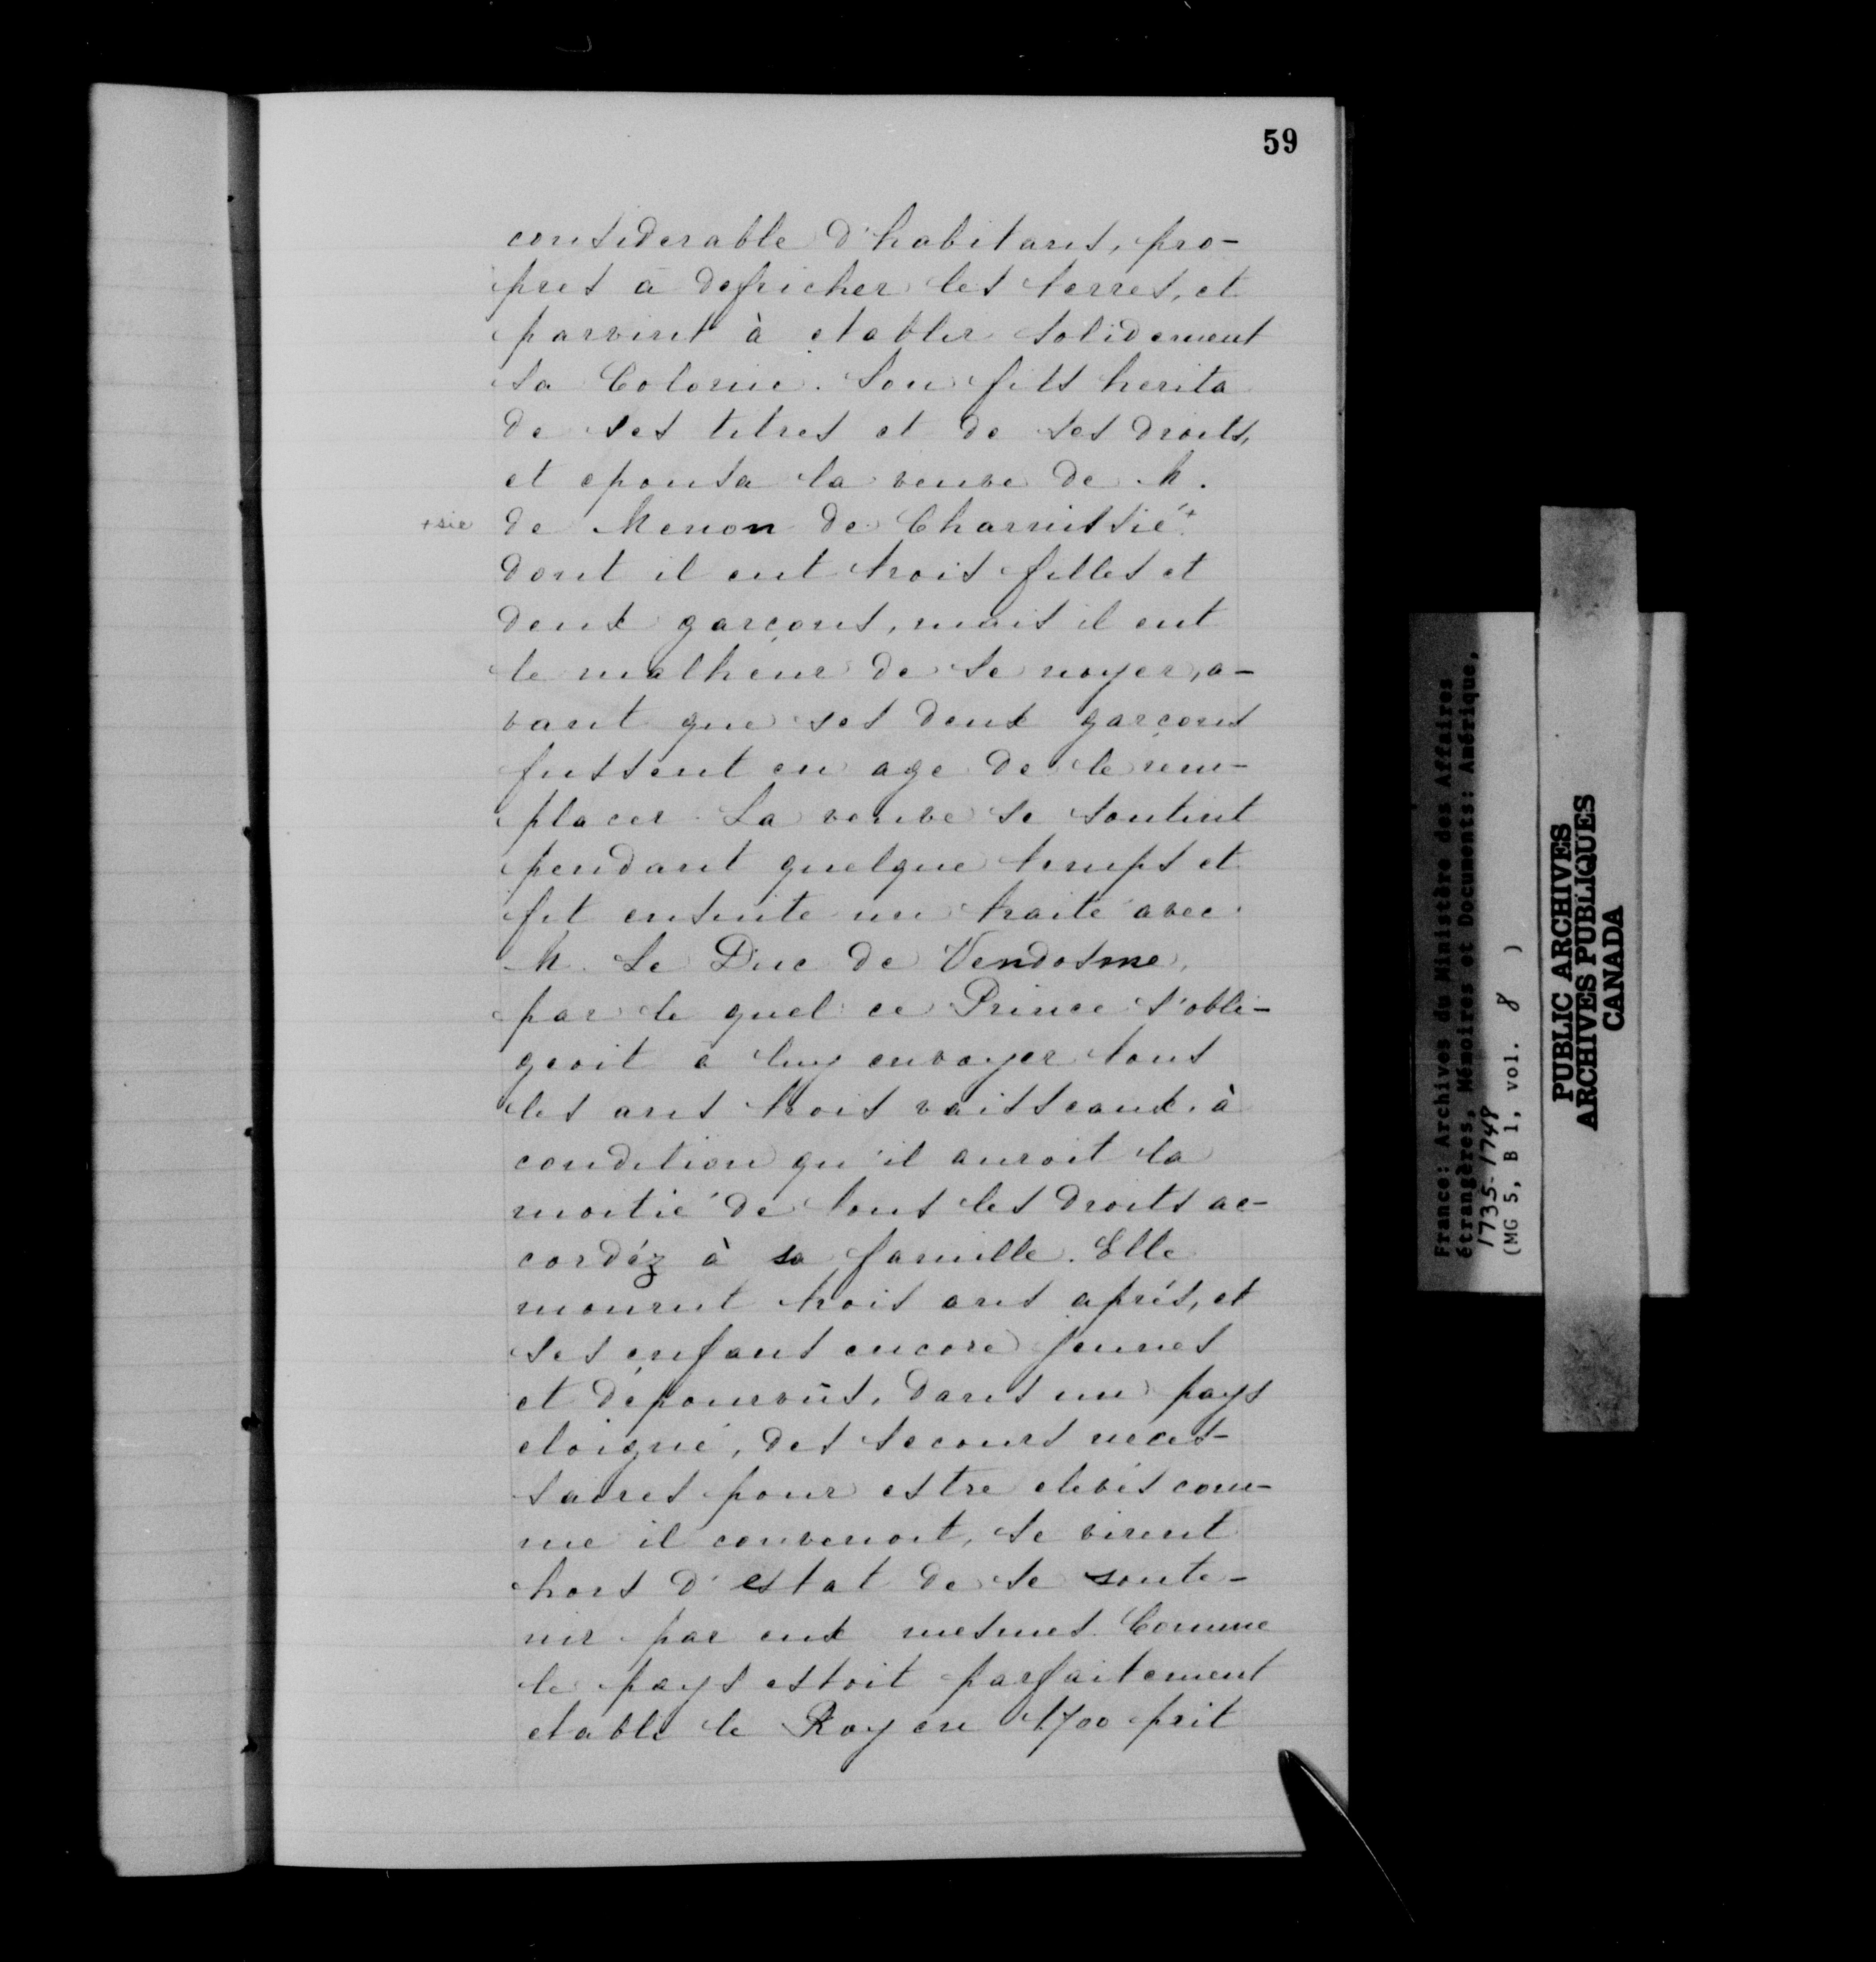 59
considerable d'habitans, pro-
pres a defricher les terres, et
parvint à etablir solidement
sa Colonie. Son fils herita
de ses titres et de ses droits,
et epousa la veuve de M.
+ sic de Menon de Charnissié+
dont il eut trois filles et
deux garçons, mais il eut
le malheur de se noyer, a-
vant que ses deux garçons
fussent en age de le rem-
placer. La veuve se soutint
pendant quelque temps et
fit ensuite un traité avec
M. Le Duc de Vendosme,
par le quel ce Prince s'obli-
geoit a luy envoyer tous
les ans trois vaisseaux, à
condition qu'il auroit la
moitié de tous les droits ac-
cordéz à sa famille. Elle
mourut trois ans aprés, et
ses enfans encore jeunes
et dépourvûs, dans un pays
eloigné, des secours neces-
saires pour estre elevés com-
me il convenoit, se virent
hors d'estat de se soute-
nir par eux mesmes. Comme
le pays estoit parfaitement
etabli le Roy en 1700 prit
France: Archives du Ministère des Affaires
étrangères, Mémoires et Documents: Amérique,
1735-1748
(MG 5, B 1, vol. 8 )
PUBLIC ARCHIVES
ARCHIVES PUBLIQUES
CANADA